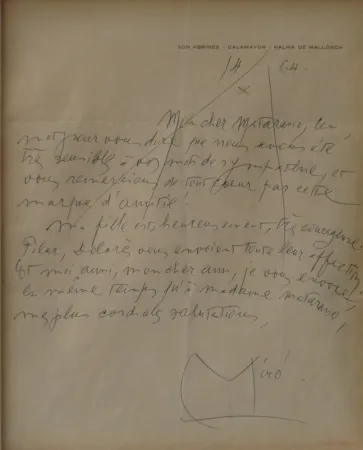 SON ABRINES - CALAMAYOR - PALMA DE MALLORCA
14 64.
Mon cher Matarasso, Un
mot pour vous dire que nous avons été
très sensibles à vos mots de sympathie, et
vous remercions de tout coeur pas cette
marque d'amitié!
Ma fille est heureusement, très courageuse.
Pilar, Dolorès vous envoient toute leur affection
Et moi aussi, mon cher ami, je vous envoie,
en même temps qu'à madame Matarasso,
mes plus cordiales salutations,
Miró.